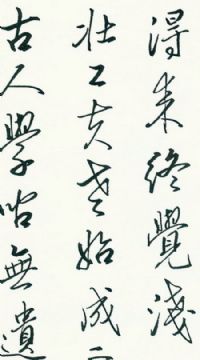 古人學问無遺
壮工夫老始成
得来終覺淺